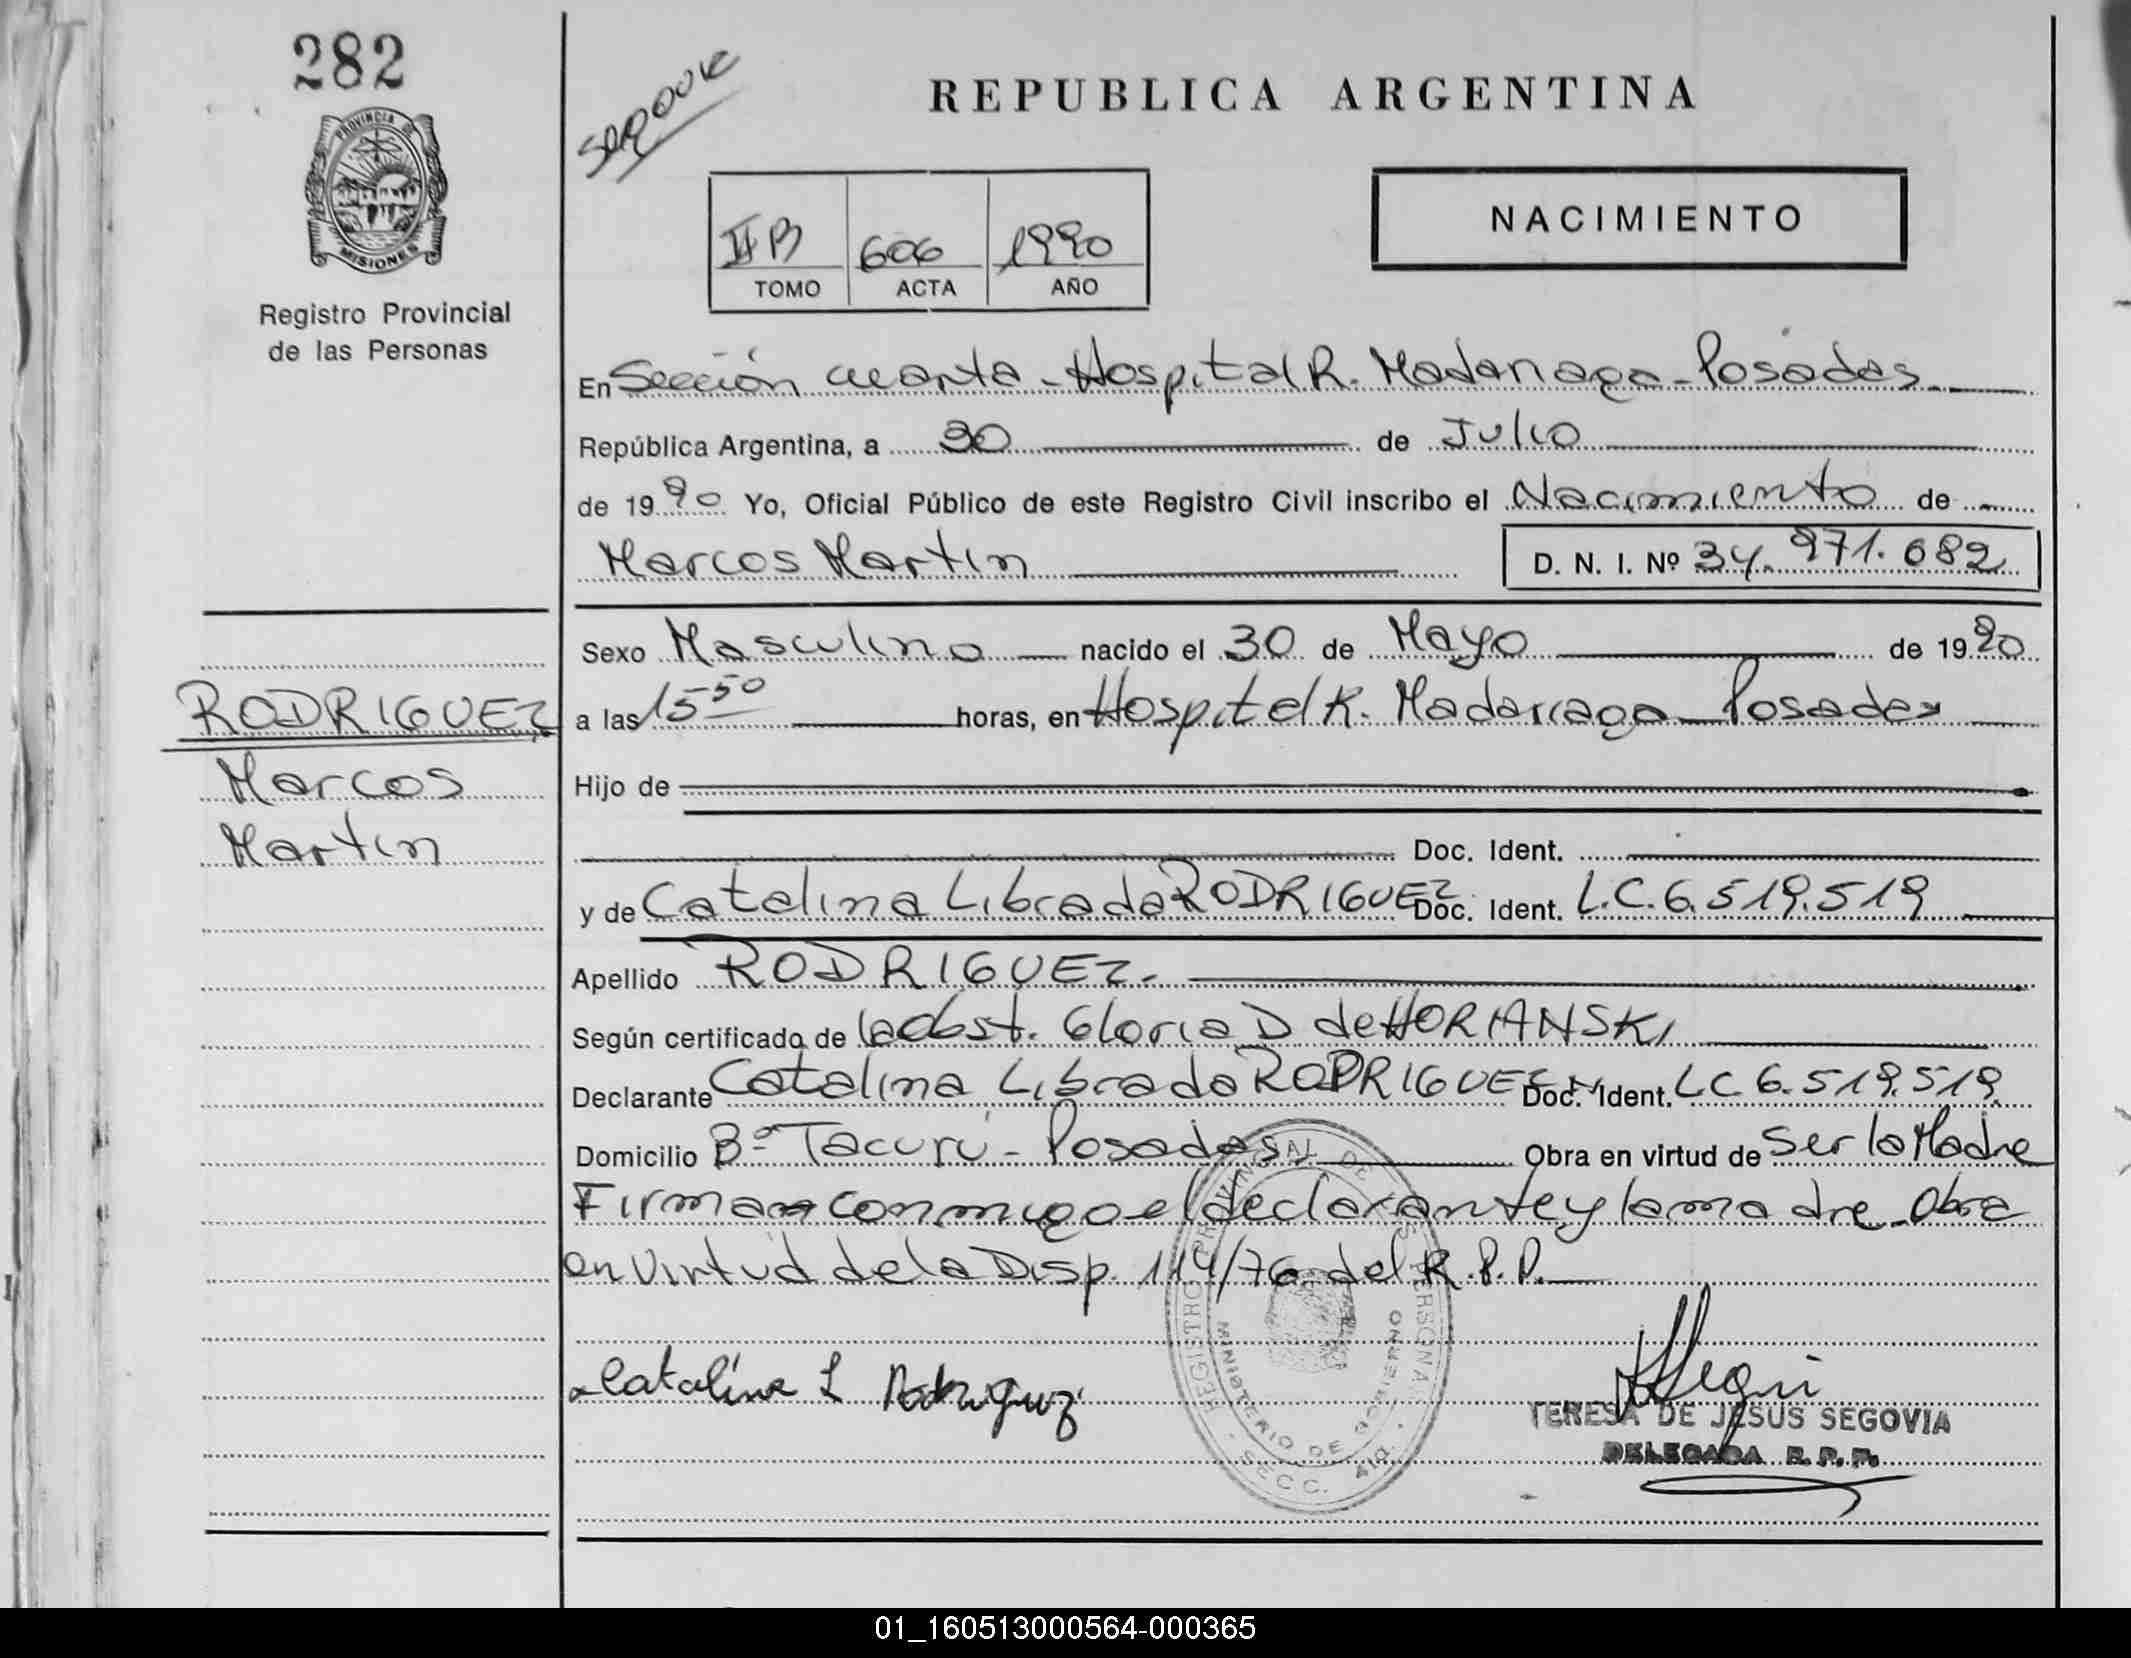 282
PROVINCIA DE
MISIONES
Registro Provincial
de las Personas
REPUBLICA ARGENTINA
II B 606 1990
TOMO ACTA AÑO
NACIMIENTO
En Sección cuarta - Hospital R. Madariaga - Posadas
República Argentina, a 30 de Julio
de 1990 Yo, Oficial Público de este Registro Civil inscribo el Nacimiento de
Marcos Martin D. N. I. Nº 34.971.682
Sexo Masculino nacido el 30 de Mayo de 1990
RODRIGUEZ
Marcos
Martin
a las 15 50 horas, en Hospital R. Madariaga - Posadas
Hijo de
Doc. Ident.
y de Catalina Librada RODRIGUEZ Doc. Ident. L.C. 6.519.519
Apellido RODRIGUEZ.
Según certificado de la Obst. Gloria D de HORIANSKI
Declarante Catalina Librada RODRIGUEZ Doc. Ident. LC 6.519.519
Domicilio Bº Tacurú - Posadas Obra en virtud de Ser la Madre
Firman conmigo el declarante y la madre - Obra
en virtud de la Disp. 114/76 del R.P.P.
REGISTRO PROVINCIAL DE LAS PERSONAS
MINISTERIO DE GOBIERNO
SECC. 4ta.
Catalina L Rodriguez
TERESA DE JESUS SEGOVIA
DELEGADA R. P. P.
01_160513000564-000365